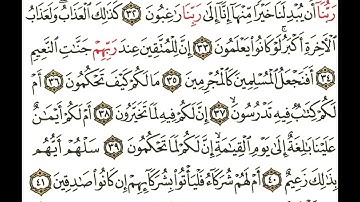 رَبُّنَا أَن يُبْدِلَنَا خَيْرًا مِّنْهَا إِنَّا إِلَىٰ رَبِّنَا رَاغِبُونَ ٣٢ كَذَٰلِكَ الْعَذَابُ ۖ وَلَعَذَابُ
الْآخِرَةِ أَكْبَرُ ۚ لَوْ كَانُوا يَعْلَمُونَ ٣٣ إِنَّ لِلْمُتَّقِينَ عِندَ رَبِّهِمْ جَنَّاتِ النَّعِيمِ
٣٤ أَفَنَجْعَلُ الْمُسْلِمِينَ كَالْمُجْرِمِينَ ٣٥ مَا لَكُمْ كَيْفَ تَحْكُمُونَ ٣٦ أَمْ
لَكُمْ كِتَابٌ فِيهِ تَدْرُسُونَ ٣٧ إِنَّ لَكُمْ فِيهِ لَمَا تَخَيَّرُونَ ٣٨ أَمْ لَكُمْ أَيْمَانٌ
عَلَيْنَا بَالِغَةٌ إِلَىٰ يَوْمِ الْقِيَامَةِ ۙ إِنَّ لَكُمْ لَمَا تَحْكُمُونَ ٣٩ سَلْهُمْ أَيُّهُم
بِذَٰلِكَ زَعِيمٌ ٤٠ أَمْ لَهُمْ شُرَكَاءُ فَلْيَأْتُوا بِشُرَكَائِهِمْ إِن كَانُوا صَادِقِينَ ٤١